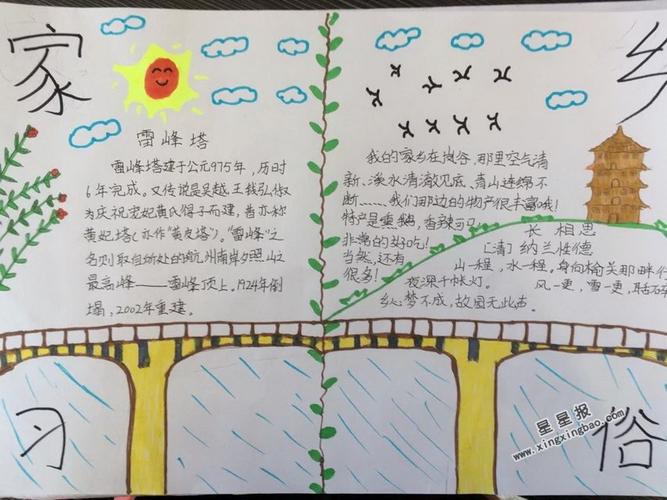 家
乡
雷峰塔
雷峰塔建于公元975年，历时
6年完成。又传说是吴越王钱弘俶
为庆祝宠妃黄氏得子而建，昔亦称
黄妃塔（亦作“黄皮塔”）。“雷峰”之
名则取自坍处的杭州南岸夕照山之
最高峰——雷峰顶上。1924年倒
塌，2002年重建。
我的家乡在拗谷，那里空气清
新、溪水清澈见底、青山连绵不
断……我们那边的物产很丰富哦！
特产是熏鹅，香辣可口，
非常的好吃！
当然，还有
很多！
长相思
［清］纳兰性德
山一程，水一程，身向榆关那畔行
夜深千帐灯。
风一更，雪一更，聒碎
乡心梦不成，故园无此声。
习
俗
星星报
www.xingxingbao.com